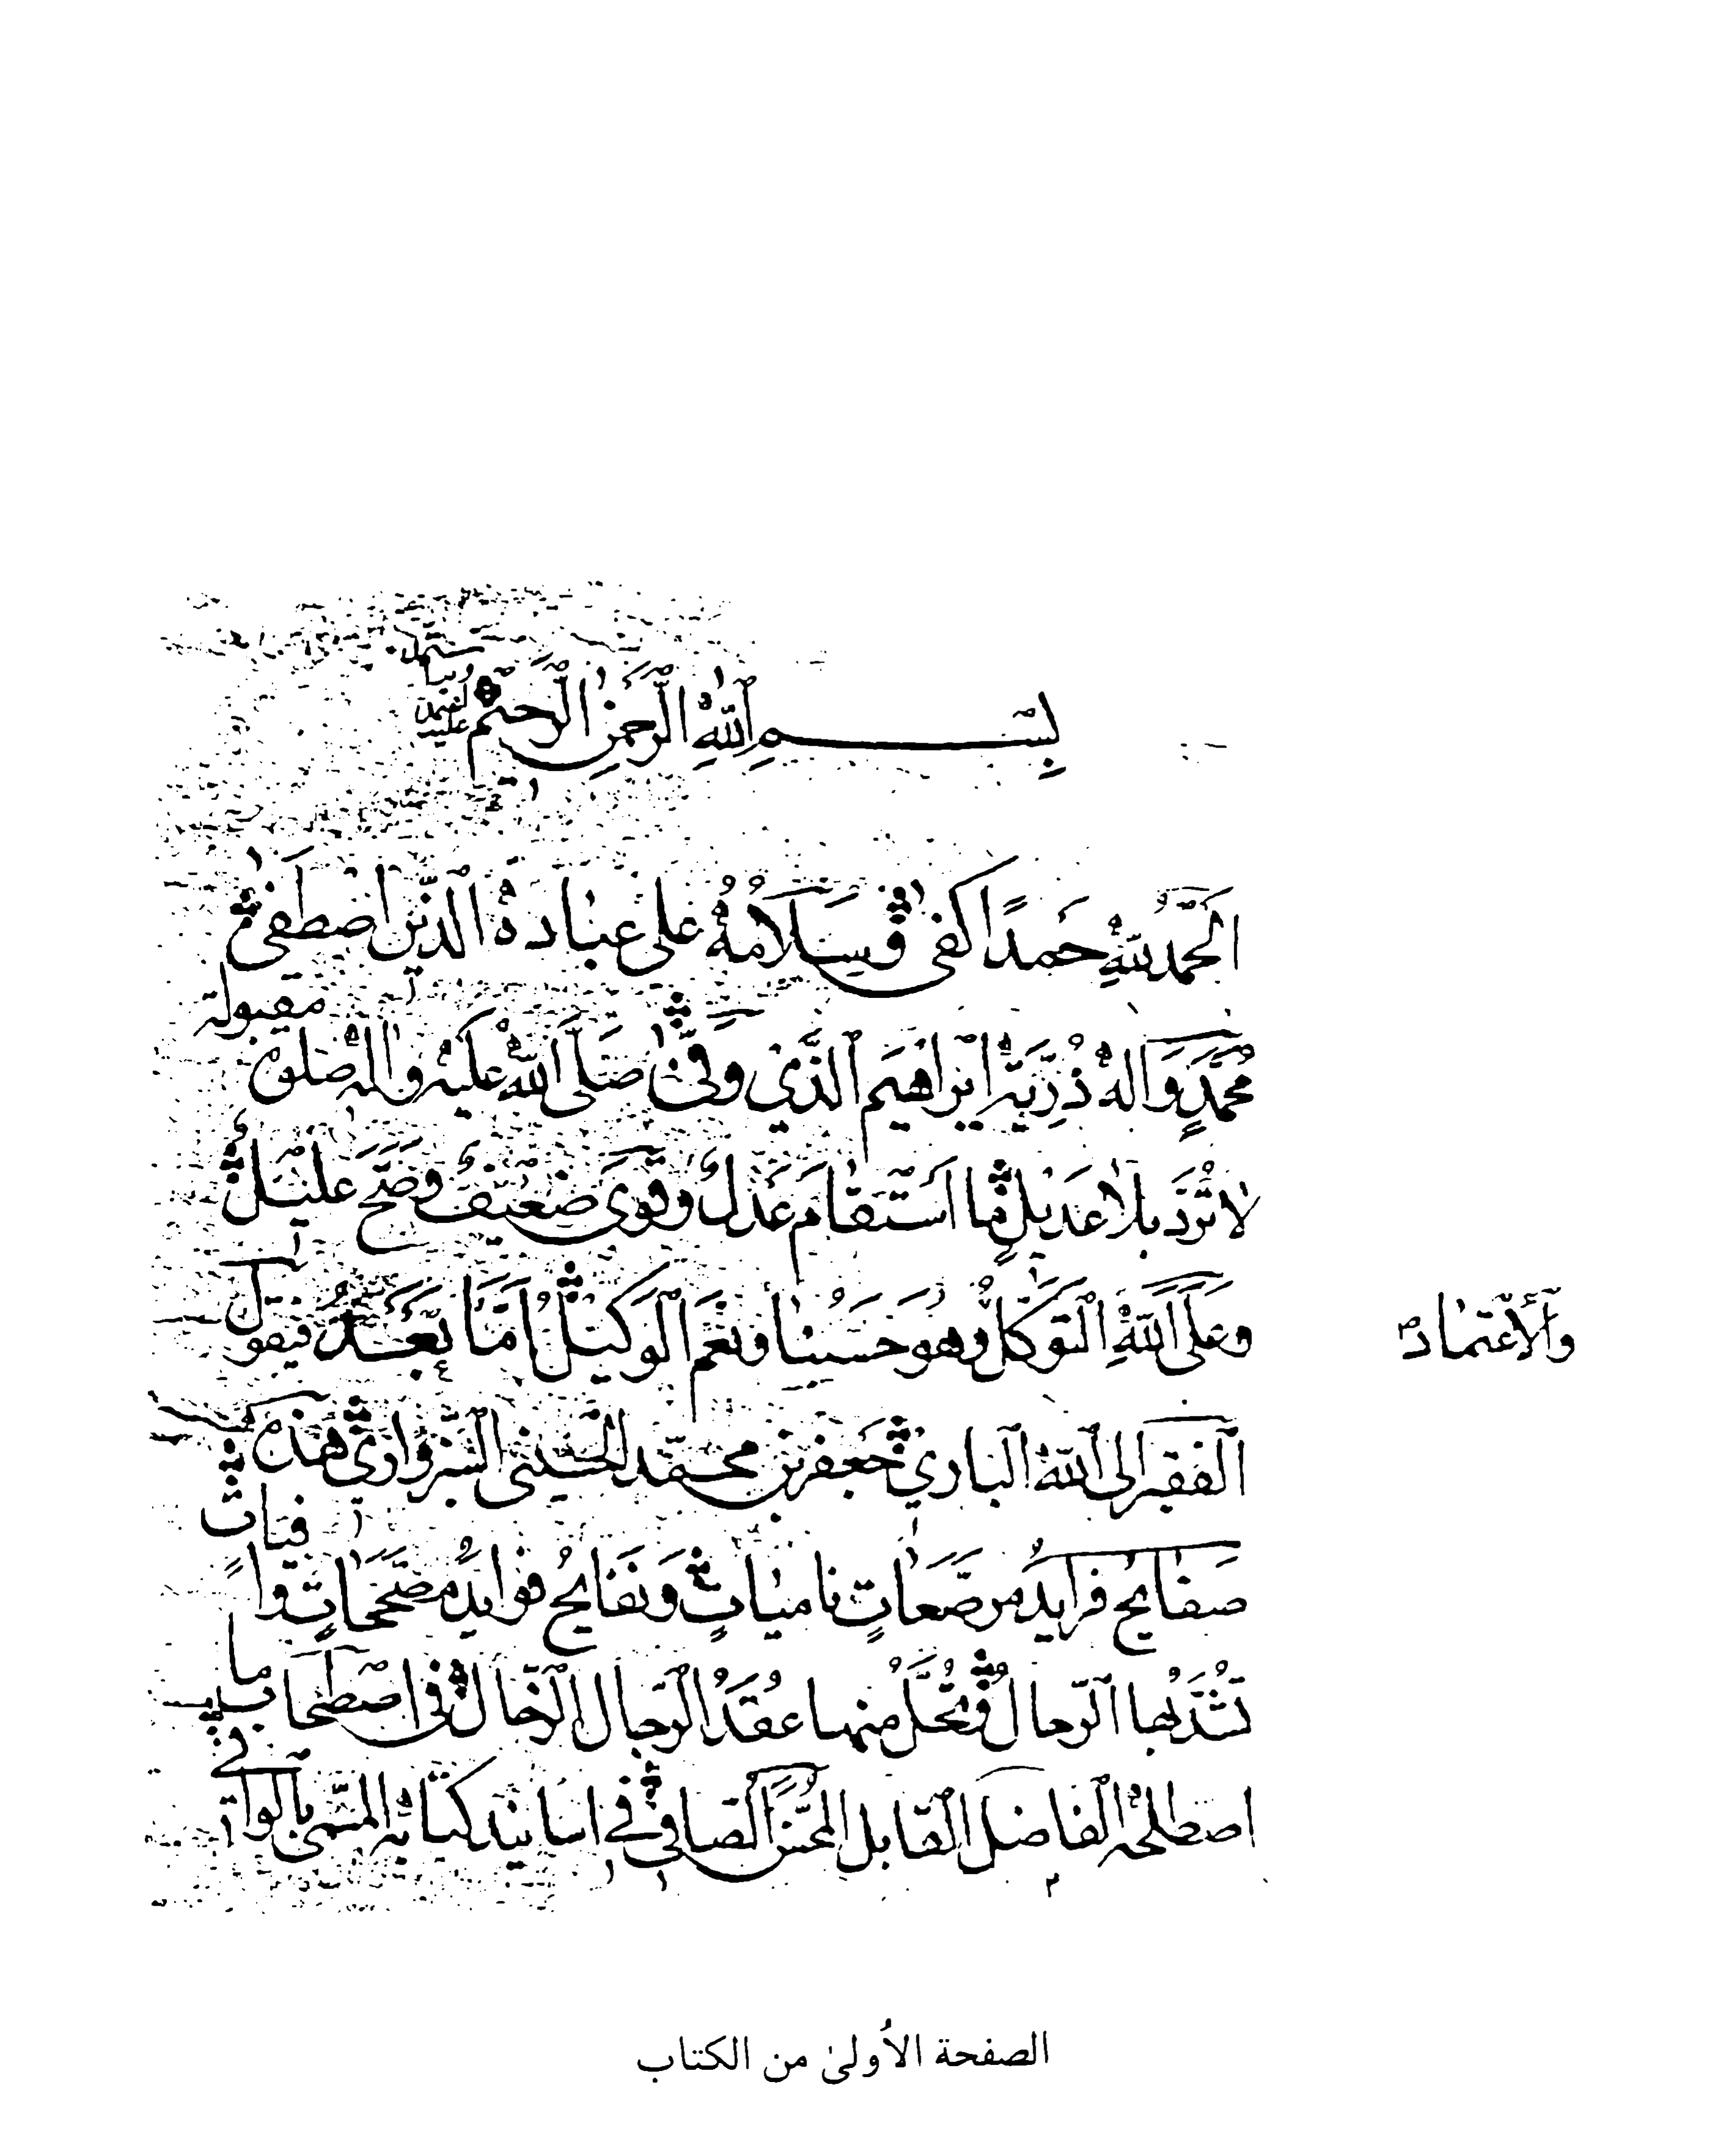 بِسْمِ اللهِ الرَّحْمٰنِ الرَّحيْمِ
اَلْحَمْدُ للهِ حَمَدًا كَفى وَسَلَامُهُ عَلى عِبَادِهِ الَّذينَ اصْطَفى
مُحَمَّدٍ وَاله ذُرِّيَّةِ اِبْرَاهيمَ الَّذي وَفّى صَلَّى اللهُ عَلَيْهِ وَالِهِ صَلوة مقبولة
لا تُرَدّ بلا عَديلٍ مَا اسْتَقَامَ عَدلٌ وَقَوى ضَعْيفٌ وَصَحَّ عَليْلٌ
وَعَلَى اللهِ التوَكُّلُ وهو حَسْبُنَا ونعْمَ الوَكيْلُ اَمَّا بَعْدُ فيقول
وَالأعْتماد
الفَقيرُ الى الله البَاري جَعفر بن محمّد الحُسَيني السَّبزواري هذه
صَفايحُ فَرايدُ مرصَّعَاتٍ نامياتٍ وَنَفَايحُ فوايدُ مصَحَّحَاتٍ وافيات
تُشَدُّ بها الرّحالُ وَتُحَلُّ منها عُقَدُ الرّجال الرّجال في اصْطحاب ما
اصطلحه الفاضل القابل المحسن الصافي في اسانيد كتابه المسَمّى بالوافي
الصفحة الأولىٰ من الكتاب